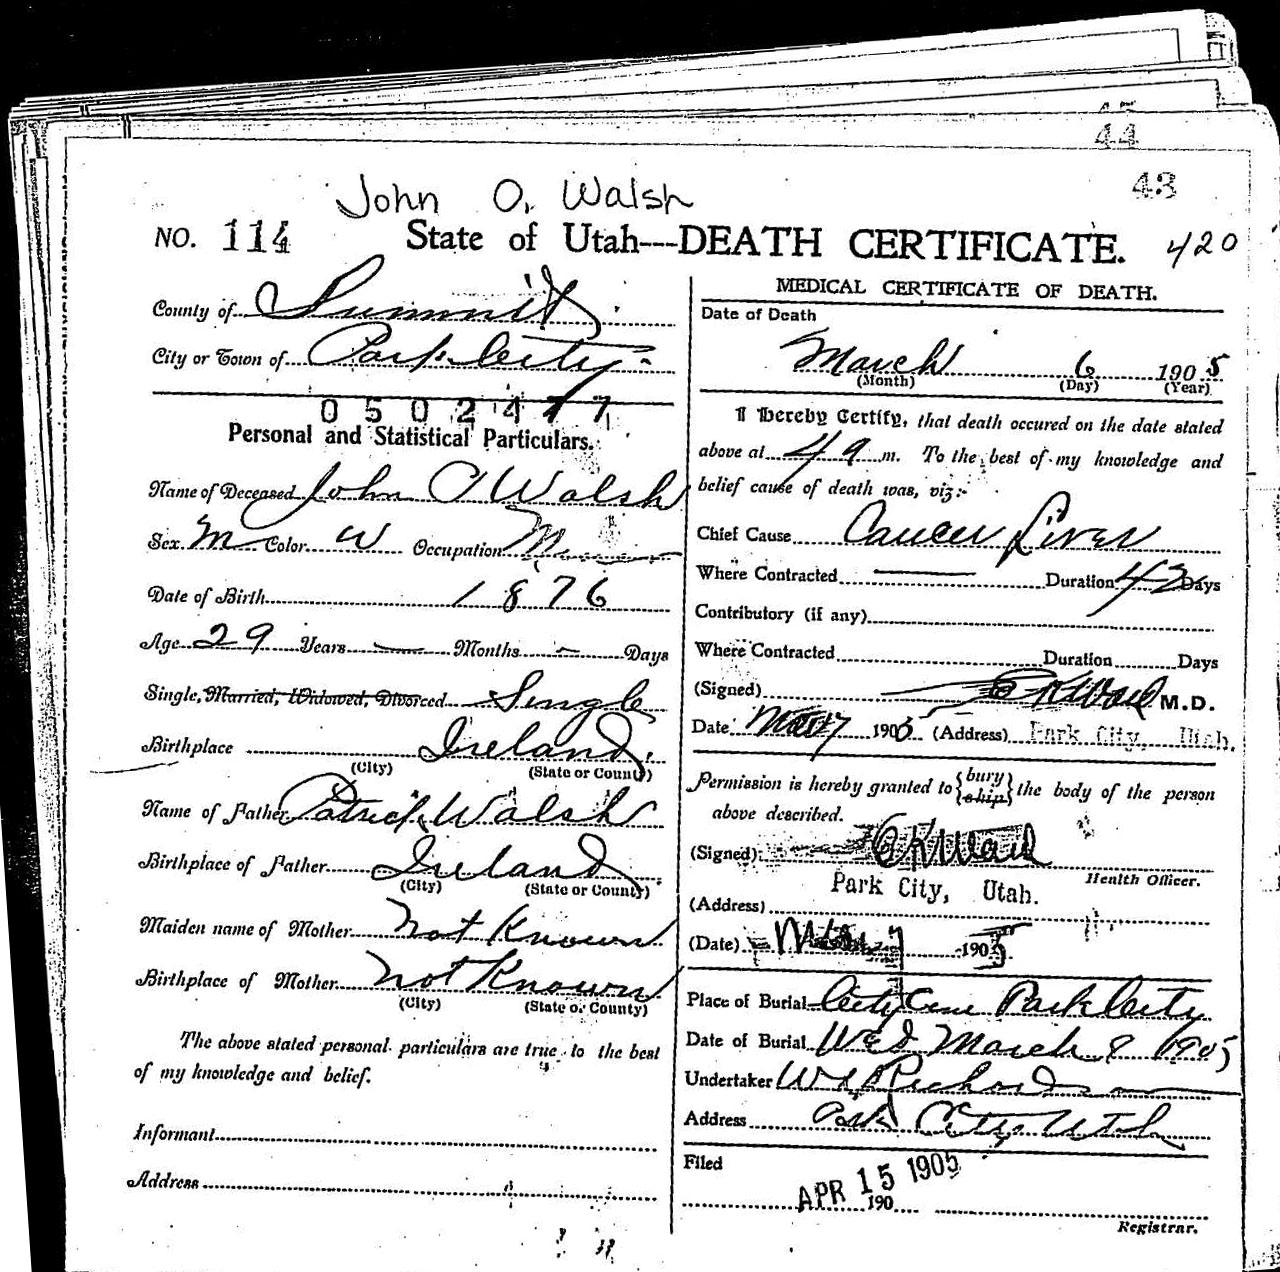 45
44
43
John O. Walsh
NO. 114 State of Utah---DEATH CERTIFICATE. 420
County of Summit
City or Town of Park City
0502477
Personal and Statistical Particulars.
Name of Deceased John O Walsh
Sex M Color W Occupation
Date of Birth 1876
Age 29 Years — Months - Days
Single, Married, Widowed, Divorced Single
Birthplace Ireland
(City) (State or County)
Name of Father Patrick Walsh
Birthplace of Father Ireland
(City) (State or County)
Maiden name of Mother not Known
Birthplace of Mother not Known
(City) (State or County)
The above stated personal particulars are true to the best
of my knowledge and belief.
Informant
Address
MEDICAL CERTIFICATE OF DEATH.
Date of Death
March 6 1905
(Month) (Day) (Year)
I Hereby Certify, that death occured on the date stated
above at 4 a m. To the best of my knowledge and
belief cause of death was, viz:-
Chief Cause Cancer Liver
Where Contracted — Duration 42 Days
Contributory (if any)
Where Contracted Duration Days
(Signed) M.D.
Date Mar 7 1905 (Address) Park City, Utah.
Permission is hereby granted to {bury ship} the body of the person
above described.
(Signed)
Health Officer.
Park City, Utah.
(Address)
(Date) Mar 7 1905
Place of Burial City Cem Park City
Date of Burial Wed March 8 1905
Undertaker Richardson
Address Park City Utah
Filed
APR 15 1905
190
Registrar.